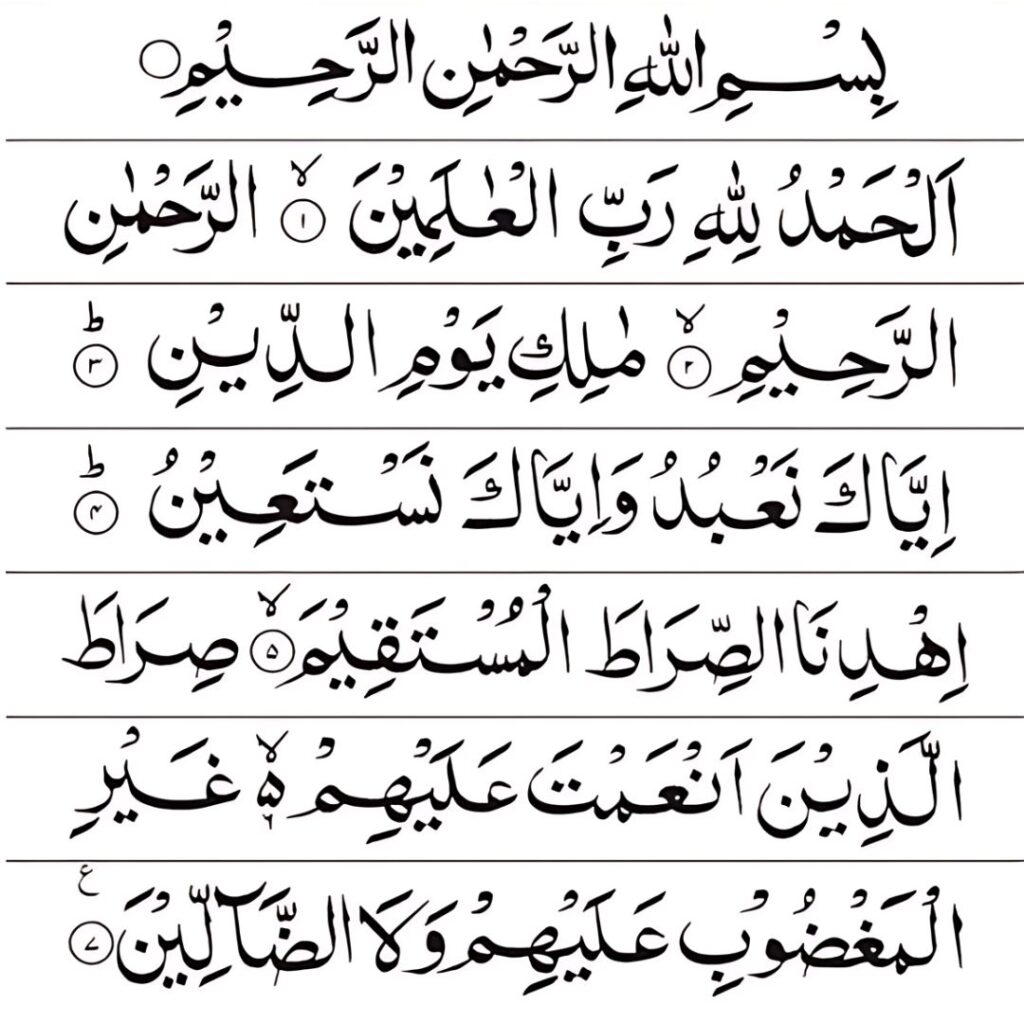 بِسْمِ اللهِ الرَّحْمٰنِ الرَّحِيْمِ ○
اَلْحَمْدُ لِلّٰهِ رَبِّ الْعٰلَمِيْنَ ۙ ١ الرَّحْمٰنِ
الرَّحِيْمِ ۙ ٢ مٰلِكِ يَوْمِ الدِّيْنِ ؕ ٣
اِيَّاكَ نَعْبُدُ وَاِيَّاكَ نَسْتَعِيْنُ ؕ ۴
اِهْدِنَا الصِّرَاطَ الْمُسْتَقِيْمَ ۙ ۵ صِرَاطَ
الَّذِيْنَ اَنْعَمْتَ عَلَيْهِمْ ۙ ۵ ٦ غَيْرِ
الْمَغْضُوْبِ عَلَيْهِمْ وَلَا الضَّآلِّيْنَ ع ٧